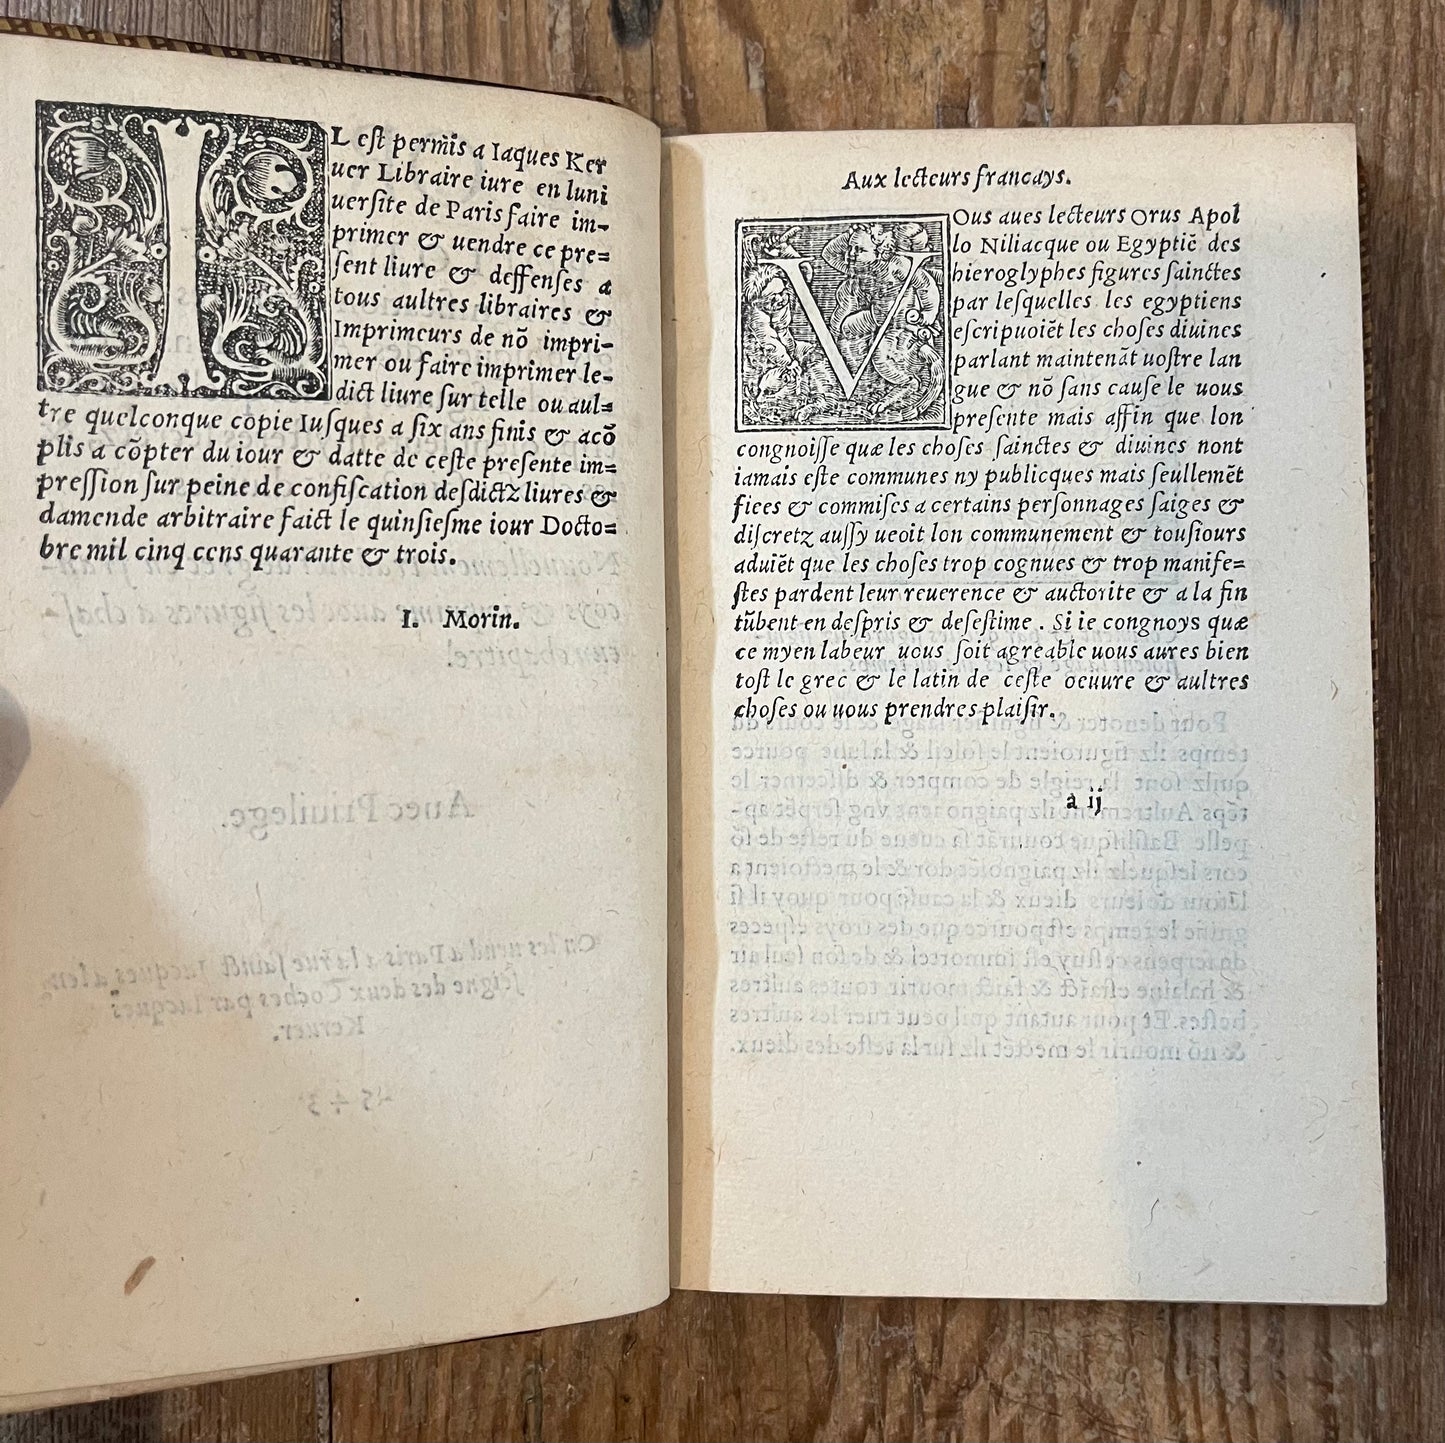 IL est permis a Iaques Ker
uer Libraire iure en luni
uersite de Paris faire im-
primer & uendre ce pre=
sent liure & deffenses a
tous aultres libraires &
Imprimeurs de nõ impri-
mer ou faire imprimer le-
dict liure sur telle ou aul=
tre quelconque copie Iusques a six ans finis & acõ
plis a cõpter du iour & datte de ceste presente im=
pression sur peine de confiscation desdictz liures &
damende arbitraire faict le quinsiesme iour Docto=
bre mil cinq cens quarante & trois.
I. Morin.
Aux lecteurs francays.
VOus aues lecteurs Orus Apol
lo Niliacque ou Egyptiẽ des
hieroglyphes figures sainctes
par lesquelles les egyptiens
escripuoiẽt les choses diuines
parlant maintenãt uostre lan
gue & nõ sans cause le uous
presente mais affin que lon
congnoisse quæ les choses sainctes & diuines nont
iamais este communes ny publicques mais seullemẽt
fices & commises a certains personnages saiges &
discretz aussy ueoit lon communement & tousiours
aduiẽt que les choses trop cognues & trop manife=
stes pardent leur reuerence & auctorite & a la fin
tũbent en despris & desestime. Si ie congnoys quæ
ce myen labeur uous soit agreable uous aures bien
tost le grec & le latin de ceste oeuure & aultres
choses ou uous prendres plaisir.
a ij